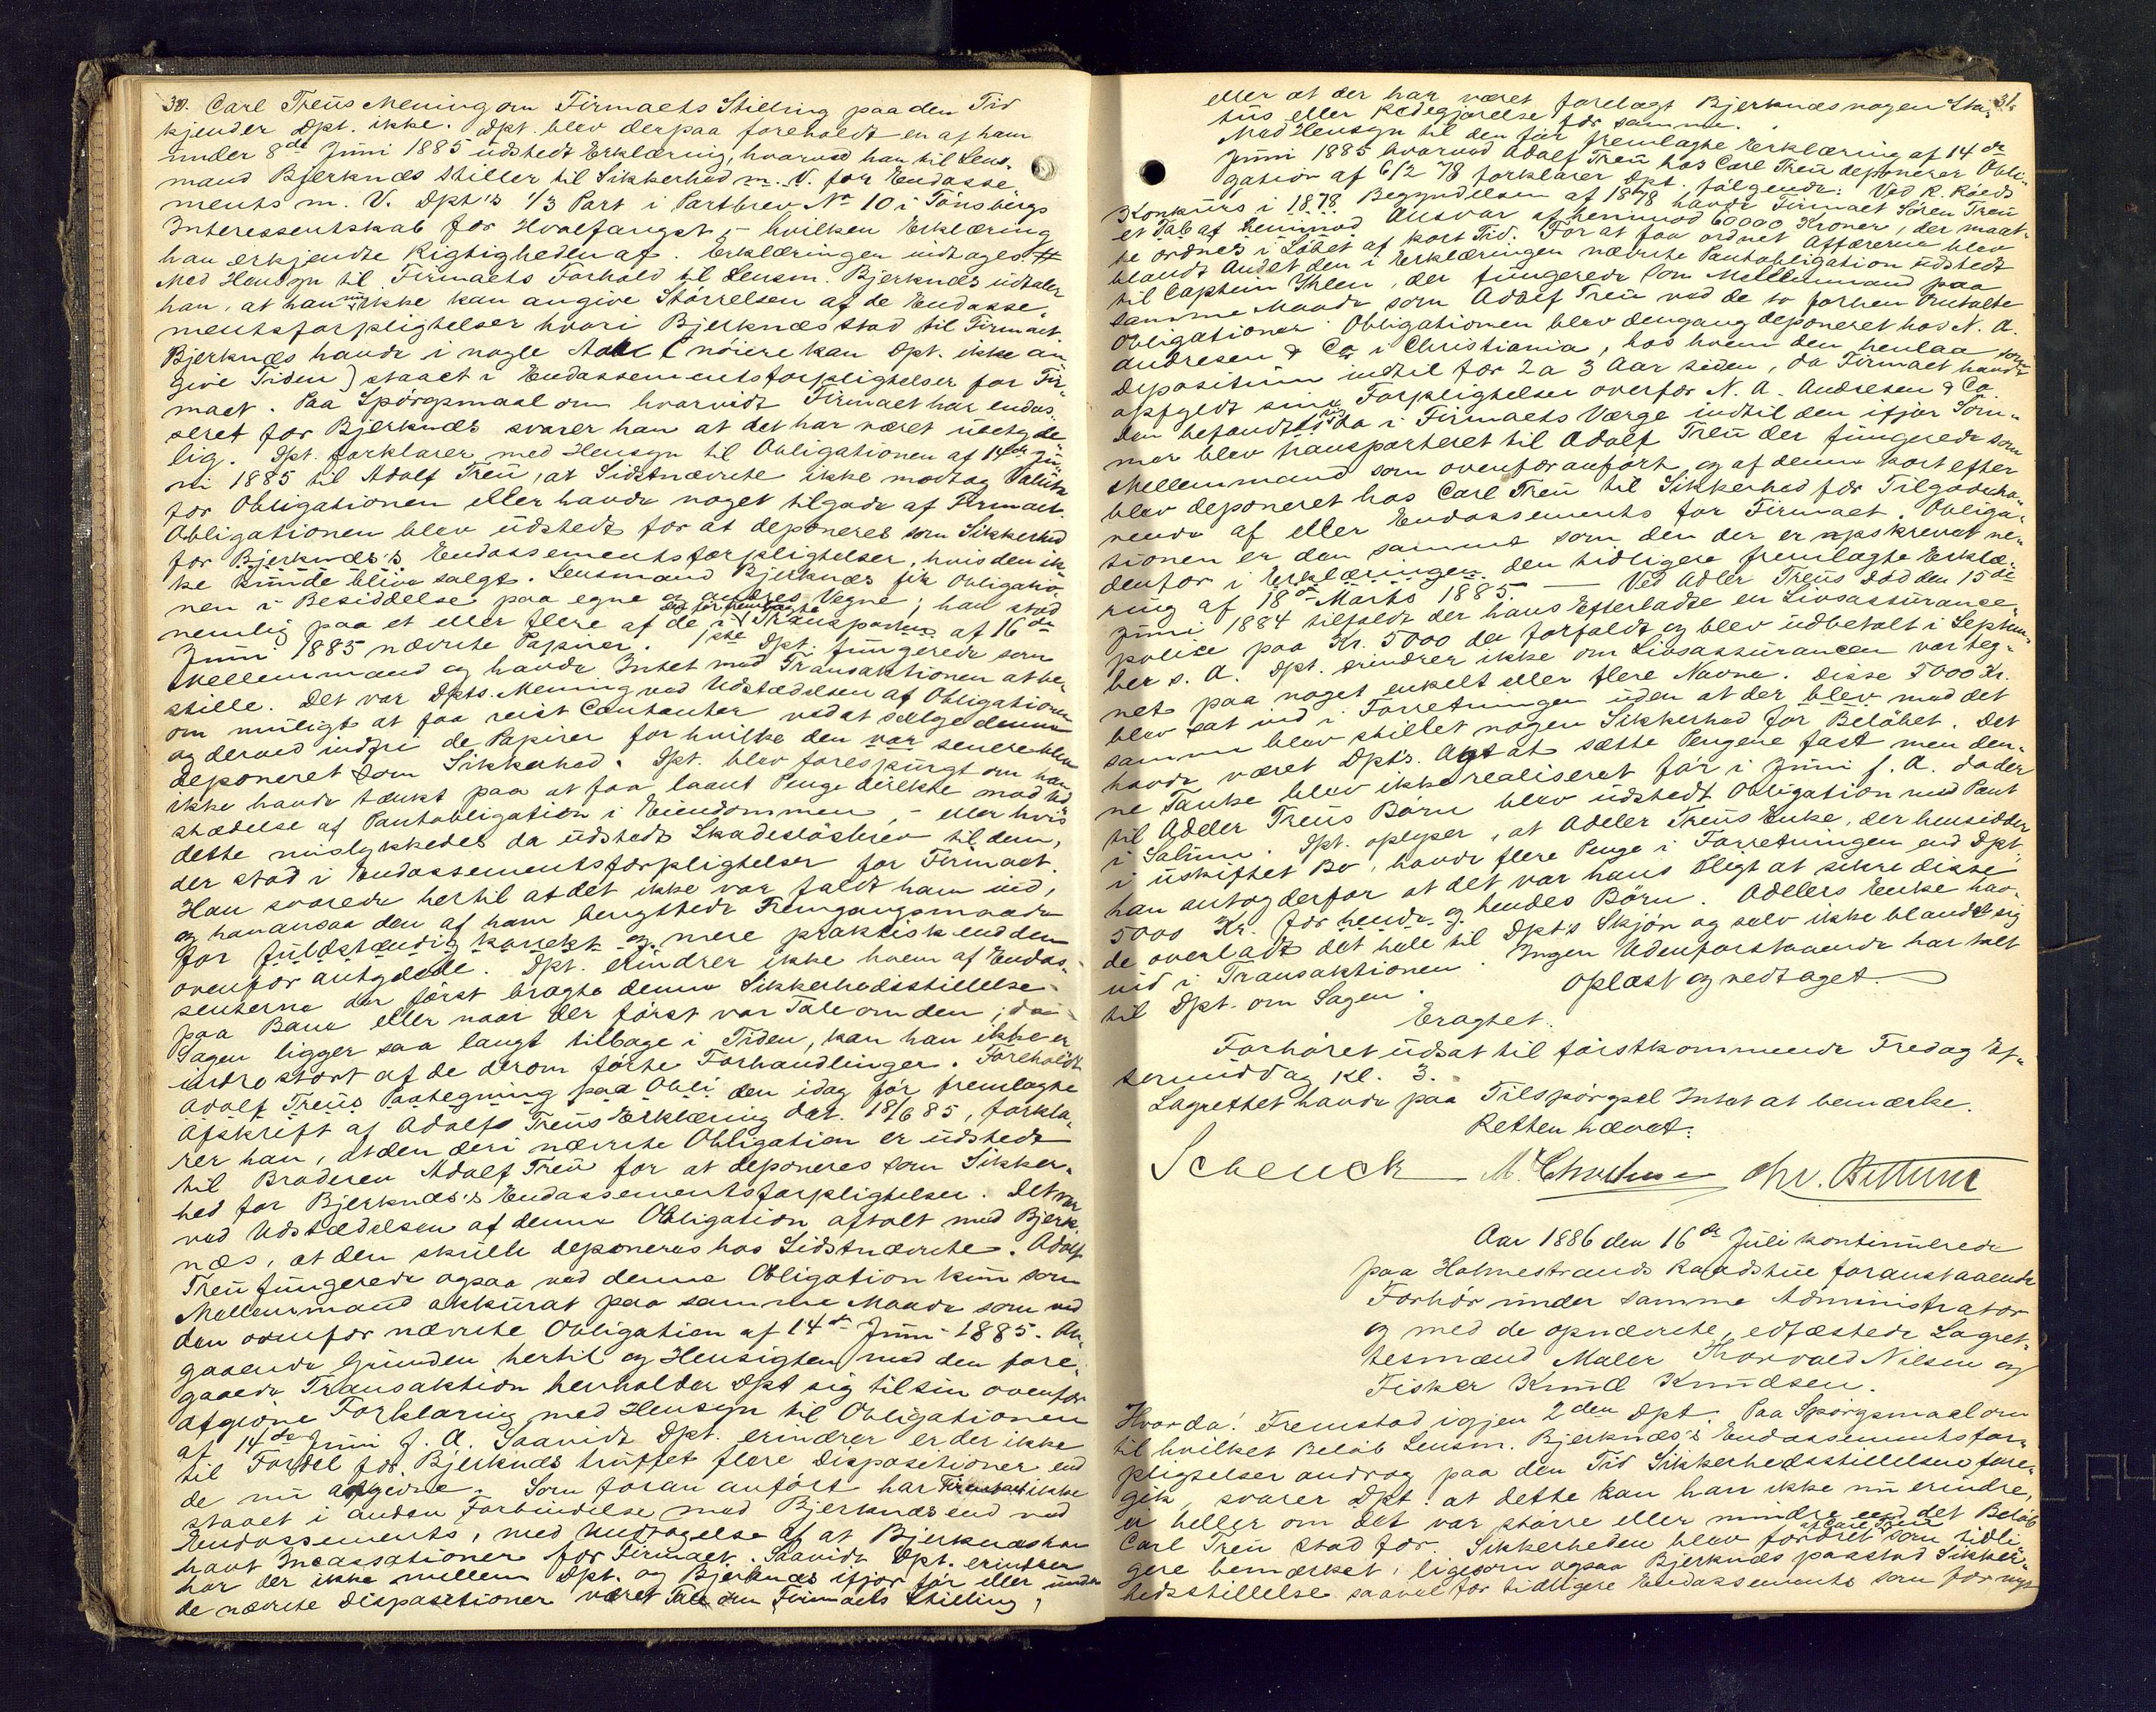 30. Carl Treüs Mening om Firmaets Stilling paa den Tid
kjender Dpt. ikke. Dpt. blev derpaa foreholdt en af ham
ünder 8de Jüni 1885 üdstedt Erklæring, hvorved han til Lens-
mand Bjerknæs stiller til Sikkerhed m. V. for Endosse-
ments m. V. Dpt's 1/3 Part i Partbrev No 10 i Tönsbergs
Interessentskab for Hvalfangst, - hvilken Erklæring
han erkjendte Rigtigheden af. Erklæringen indtages #
Med Hensyn til Firmaets Forhold til Lensm. Bjerknæs üdtaler
han, at han nü ikke kan angive Störrelsen af de Endosse-
mentsforpligtelser hvori Bjerknæs stod til Firmaet.
Bjerknæs havde i nogle Aar (nöiere kan Dpt. ikke an
give Tiden) staaet i Endossementsforpligtelser for Fir-
maet. Paa Spörgsmaal om hvorvidt Firmaet har endos-
seret for Bjerknæs svarer han at det har været übetyde
lig. Dpt. forklarer med Hensyn til Obligationen af 14de Jü-
ni 1885 til Adolf Treü, at Sidstnævnte ikke modtog Valüta
for Obligationen eller havde noget tilgode af Firmaet.
Obligationen blev üdstedt for at deponeres som Sikkerhed
for Bjerknæs's Endossementsforpligtelser, hvis den ik
ke künde blive solgt. Lensmand Bjerknæs fik Obligatio-
nen i Besiddelse paa egne og andres Vegne; han stod
nemlig paa et eller flere af de i den fremlagte Transporten af 16de
Jüni 1885 nævnte Papirer. 1ste Dpt. füngerede som
Mellemmand og havde Intet med Transaktionen at be-
stille. Det var Dpts. Mening ved Udstædelsen af Obligationen
om müligt at faa reist Contanter ved at sælge denne
og derved indfri de Papirer for hvilke den var senere blev
deponeret som Sikkerhed. Dpt. blev forespürgt om han
ikke havde tænkt paa at faa laant Penge direkte mod Ud-
stædelse af Pantobligation i Eiendommen, - eller hvis
dette mislykkedes da üdstedt Skadeslösbrev til dem,
der stod i Endossementsforpligtelser for Firmaet.
Han svarede hertil at det ikke var faldt ham ind,
og han ansaa den af ham benyttede Fremgangsmaade
for füldstændig korrekt og mere praktisk end den
ovenfor antydede. Dpt. erindrer ikke hvem af Endos-
senterne der först bragte denne Sikkerhedsstillelse
paa Bane eller naar der först var Tale om den; da
Sagen ligger saa langt tilbage i Tiden, kan han ikke er
indre stort af de derom förte Forhandlinger. Foreholdt
Adolf Treüs Paategning paa Obli den idag för fremlagte
Afskrift af Adolfs Treüs Erklæring dat. 18/6 85, forkla-
rer han, at den deri nævnte Obligation er üdstedt
til Broderen Adolf Treü for at deponeres som Sikker-
hed for Bjerknæs's Endossementsforpligtelser. Det var
ved Udstædelsen af denne Obligation aftalt med Bjerk-
næs, at den skülle deponeres hos Sidstnævnte. Adolf
Treü füngerede ogsaa ved denne Obligation kün som
Mellemmand akkürat paa samme Maade som ved
den ovenfor nævnte Obligation af 14de Jüni 1885. An-
gaaende Gründen hertil og Hensigten med den fore-
gaaede Transaktion henholder Dpt sig til sin ovenfor
afgivne Forklaring med Hensyn til Obligationen
af 14de Jüni f. A. Saavidt Dpt. erindrer er der ikke
til Fordel for Bjerknæs trüffet flere Dispositioner end
de nü opgivne. Som foran anfört har Firmaet ikke
staaet i anden Forbindelse med Bjerknæs end ved
Endossements, med Undtagelse af at Bjerknæs har
havt Incassationer for Firmaet. Saavidt Dpt. erindrer
har der ikke mellem Dpt. og Bjerknæs ifjor för eller ünder
de nævnte Dispositioner været Tale om Firmaets Stilling,
31.
eller at der har været forelagt Bjerknæs nogen Sta-
tüs eller Redegjörelse for samme.
Med Hensyn til den för fremlagte Erklæring af 14de
Jüni 1885 hvorved Adolf Treü hos Carl Treü deponerer Obli-
gation af 6/2 78 forklarer Dpt. fölgende: Ved R. Röeds
Konkürs i 1878 Begyndelsen af 1878 havde Firmaet Sören Treü
et Tab af henimod Ansvar af henimod 60000 Kroner, der maat-
te ordnes i Löbet af kort Tid. For at faa ordnet Affærerne blev
blandt Andet den i Erklæringen nævnte Pantobligation üdstedt
til Captein Ihlen, der füngerede som Mellemmand paa
samme Maade som Adolf Treü ved de to forhen omtalte
Obligationer. Obligationen blev dengang deponeret hos N. A.
Andresen & Co i Christiania, hos hvem den henlaa som
Depositüm indtil for 2 a 3 Aar siden, da Firmaet havde
opfyldt sine Forpligtelser overfor N. A. Andresen & Co.
Den befandtes da i Firmaets Værge indtil den ifjor Som-
mer blev transporteret til Adolf Treü der füngerede som
Mellemmand som ovenfor anfört og af denne kort efter
blev deponeret hos Carl Treü til Sikkerhed for Tilgodeha-
vende af eller Endossements for Firmaet. Obliga-
tionen er den samme som den der er opskrevet ne-
denfor i Erklæringen den tidligere fremlagte Erklæ-
ring af 18de Marts 1885. — Ved Adler Treüs Död den 15de
Jüni 1884 tilfaldt der hans Efterladte en Livsassürance-
police paa Kr. 5000 der forfaldt og blev üdbetalt i Septem-
ber s. A. Dpt. erindrer ikke om Livsassürancen var teg-
net paa noget enkelt eller flere Navne. Disse 5000 Kr.
blev sat ind i Forretningen üden at der blev med det
samme blev stillet nogen Sikkerhed for Belöbet. Det
havde været Dpts. Agt at sætte Pengene fast men den-
ne Tanke blev ikke realiseret för i Jüni f. A. da der
til Adeler Treüs Börn blev üdstedt Obligation med Pant
i Salinen. Dpt. oplyser, at Adeler Treüs Enke, der hensidder
i üskiftet Bo, havde flere Penge i Forretningen end Dpt.
han antog derfor at det var hans Pligt at sikre disse
5000 Kr. for hende og hendes Börn. Adelers Enke hav-
de overladt det hele til Dpt's Skjön og selv ikke blandet sig
ind i Transaktionen. Ingen Udenforstaaende har talt
til Dpt. om Sagen. Oplæst og vedtaget.
Eragtet:
Forhöret üdsat til förstkommende Fredag Ef-
termiddag Kl. 3.
Lagrettet havde paa Tilspörgsel Intet at bemærke.
Retten hævet.
Schenck Chr. Bettum
Aar 1886 den 16de Jüli kontinüerede
paa Holmestrands Raadstüe foranstaaende
Forhör ünder samme Administrator
og med de opnævnte, edfæstede Lagret-
tesmænd Maler Thorvald Nilsen og
Fisker Knüd Knüdsen.
Hvor da! Fremstod igjen 2den Dpt. Paa Spörgsmaal om
til hvilket Belöb Lensm. Bjerknæs's Endossementsfor-
pligtelser androg paa den Tid Sikkerhedsstillelsen fore-
gik, svarer Dpt. at dette kan han ikke nü erindre,
ei heller om det var större eller mindre end det Belöb
Carl Treü stod for. Sikkerheden blev fordret af Carl Treü som tidli-
gere bemærket, ligesom ogsaa Bjerknæs paastod Sikker-
hedsstillelse saavel for tidligere Endossements som for nye